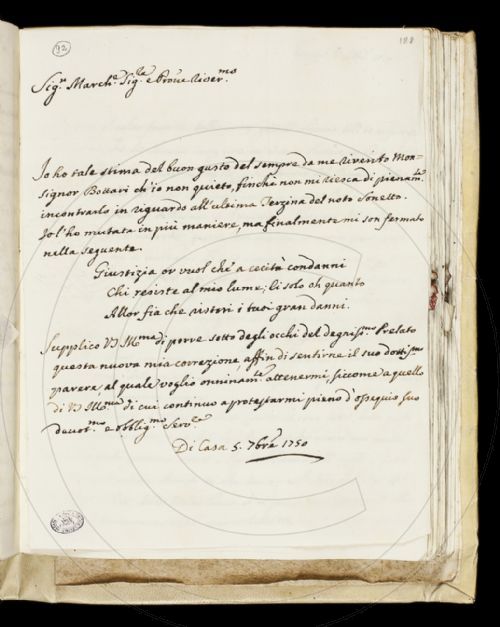 92
188
Sig.r March.e Sig.re e Prone River.mo
Io ho tale stima del buon gusto del sempre da me riverito Mon=
signor Bottari ch'io non quieto, finchè non mi riesca di pienam.te
incontrarlo in riguardo all'ultima Terzina del noto Sonetto.
Io l'ho mutata in più maniere, ma finalmente mi son fermato
nella seguente.
Giustizia or vuol che a cecità condanni
Chi resiste al mio lume; li solo oh quanto
Allor fia che ristori i tuoi gran danni.
Supplico VS Ill.ma di porre sotto degli occhi del degniss.mo Prelato
questa nuova mia correzione affin di sentirne il suo dottis.mo
parere al quale voglio onninam.te attenermi, siccome a quello
di VS Ill.ma di cui continuo a protestarmi pieno d'ossequio suo
devot.mo e obblig.mo Serv.e
Di Casa 5. 7bre 1750